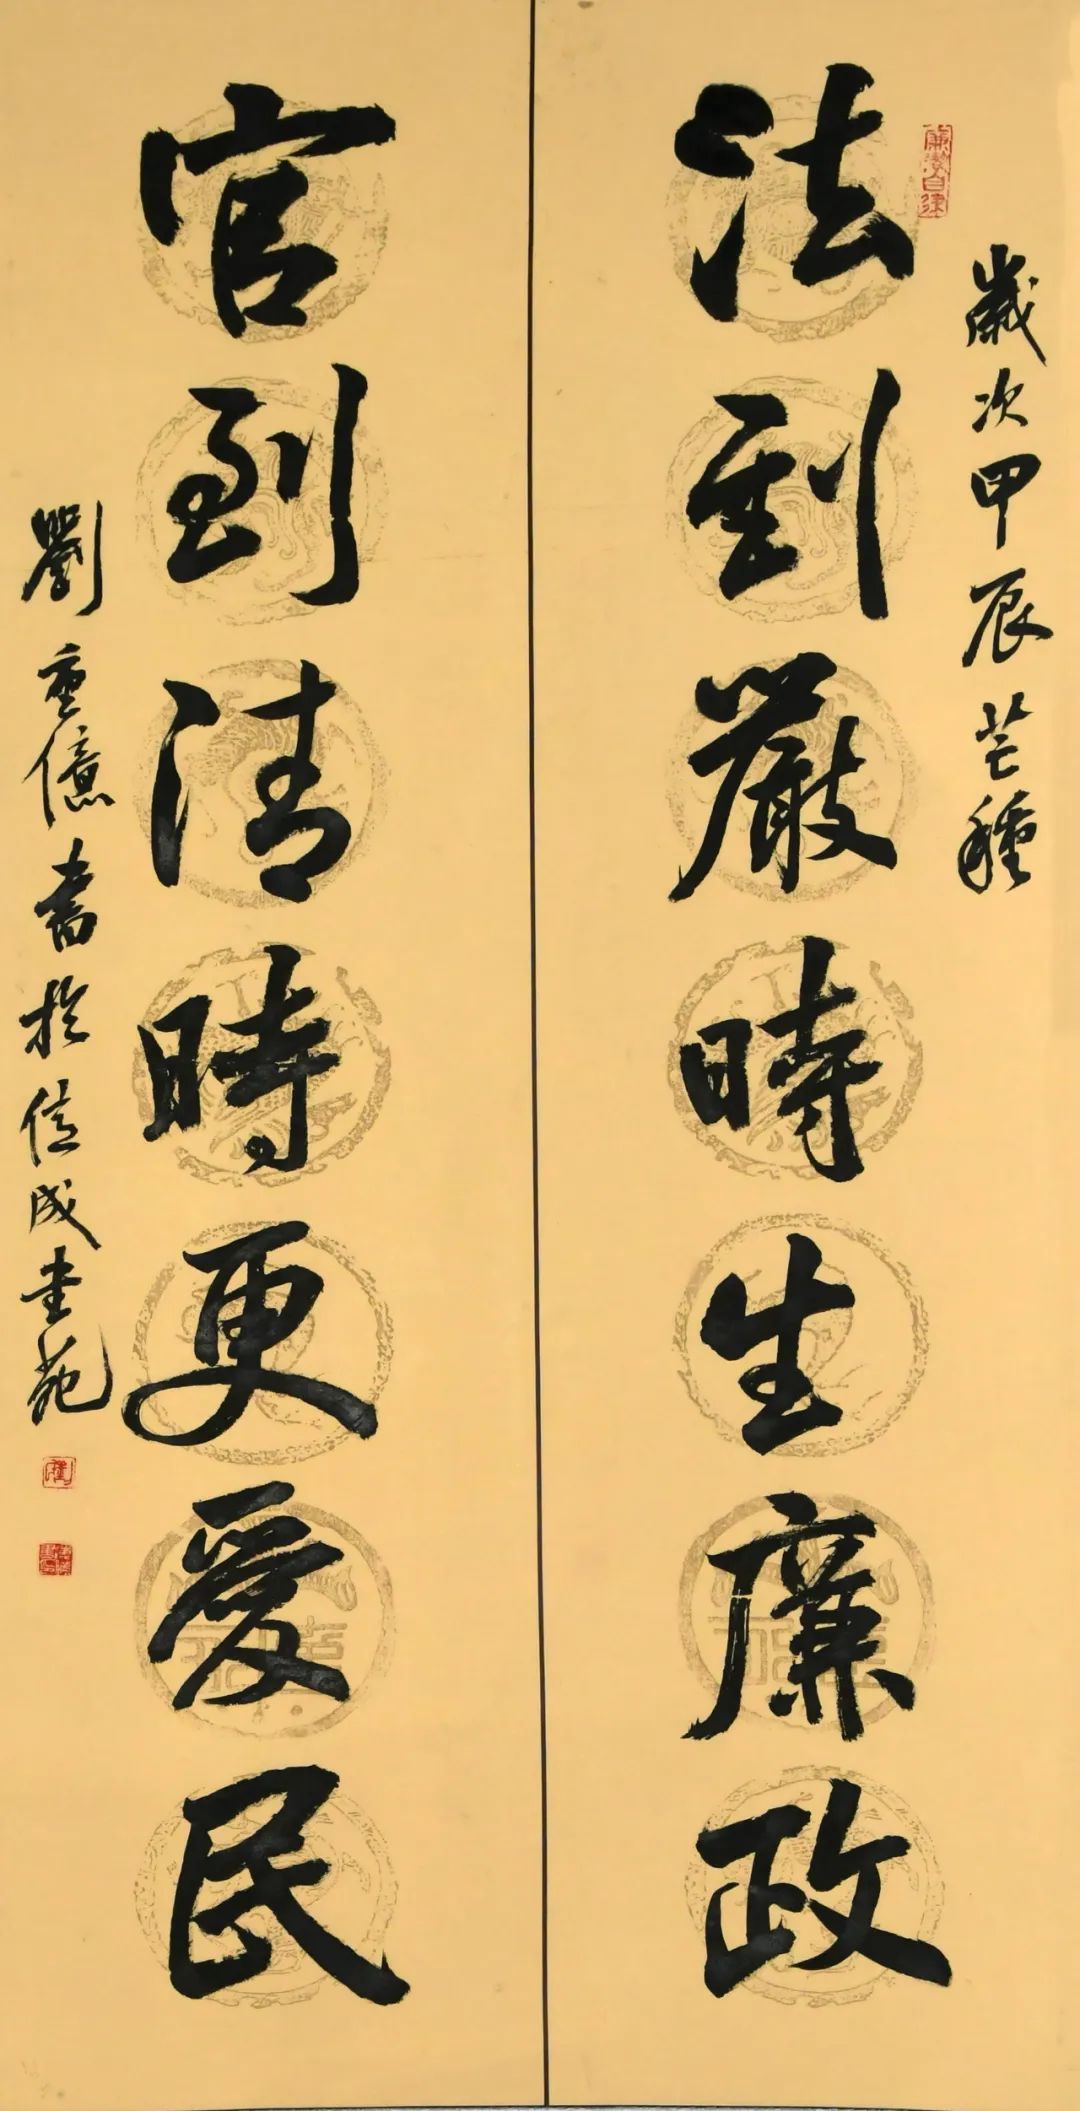 廉潔自律
歲次甲辰芒種
法到嚴時生廉政
官到清時更愛民
劉重億書於信成苑